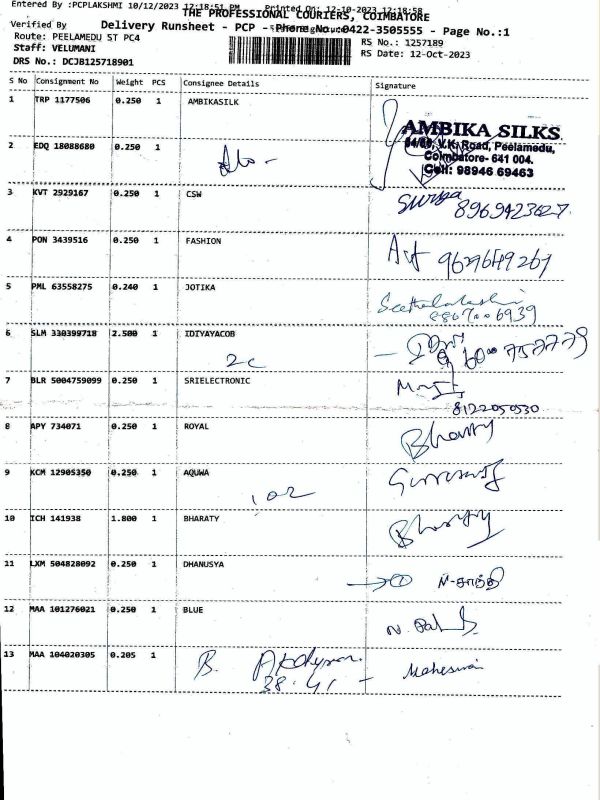 Entered By :PCPLAKSHMI 10/12/2023 12:18:51 PM Printed On: 12-10-2023 12:18:58
THE PROFESSIONAL COURIERS, COIMBATORE
Verified By
Delivery Runsheet - PCP - Phone No.:0422-3505555 - Page No.:1
Route: PEELAMEDU ST PC4
RS No.: 1257189
Staff: VELUMANI
RS Date: 12-Oct-2023
DRS No.: DCJB125718901
S No Consignment No Weight PCS Consignee Details Signature
1 TRP 1177506 0.250 1 AMBIKASILK
AMBIKA SILKS
V.K. Road, Peelamedu,
Coimbatore- 641 004.
Cell: 98946 69463
2 EDQ 18088680 0.250 1
3 KVT 2929167 0.250 1 CSW Surya
8969423627
4 PON 3439516 0.250 1 FASHION
9629649269
5 PML 63558275 0.240 1 JOTIKA
6939
6 SLM 330399718 2.500 1 IDIYAYACOB
7 BLR 5004759099 0.250 1 SRIELECTRONIC
8122050530
8 APY 734071 0.250 1 ROYAL Bharaty
9 KCM 12905350 0.250 1 AQUWA
10 ICH 141938 1.800 1 BHARATY Bharaty
11 LXM 504828092 0.250 1 DHANUSYA
12 MAA 101276021 0.250 1 BLUE
13 MAA 104020305 0.205 1 B. Maheswari